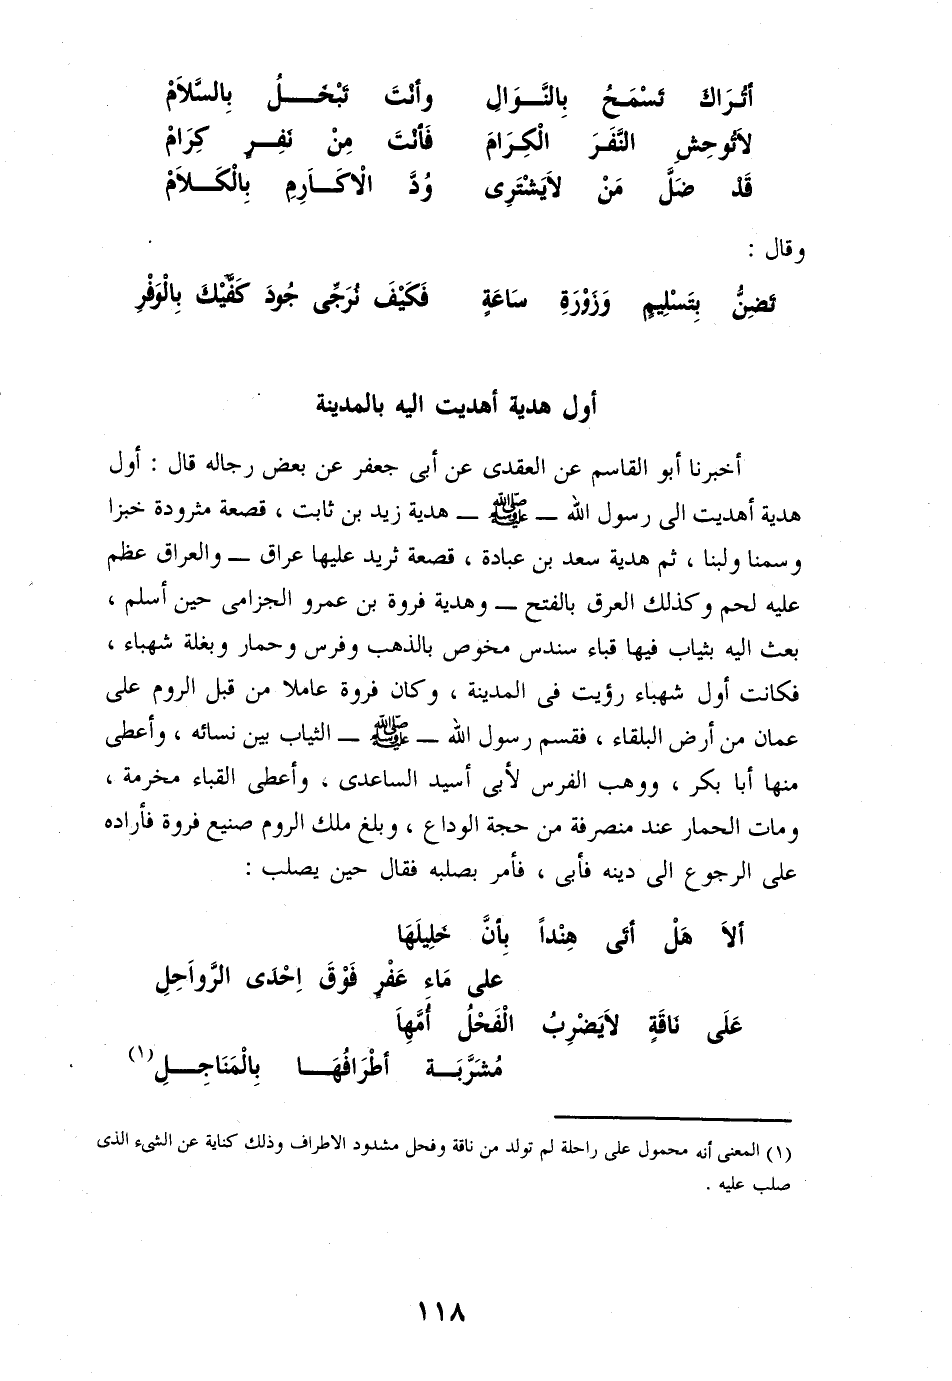 أتُرَاكَ تَسْمَحُ بِالنَّوَالِ وأنْتَ تَبْخَلُ بِالسَّلاَمْ
لاَتُوحِشِ النَّفَرَ الْكِرَامَ فَأنْتَ مِنْ نَفِرٍ كِرَامْ
قَدْ ضَلَّ مَنْ لاَيَشْتَرِى وُدَّ الْاكَارِمِ بِالْكَلاَمْ
وقال :
تَضِنُّ بِتَسْلِيمٍ وَزَوْرَةِ سَاعَةٍ فَكَيْفَ نُرَجِّى جُودَ كَفَّيْكَ بِالْوَفْرِ
أول هدية أهديت اليه بالمدينة
أخبرنا أبو القاسم عن العقدى عن أبى جعفر عن بعض رجاله قال : أول
هدية أهديت الى رسول الله ــ ﷺ ــ هدية زيد بن ثابت ، قصعة مثرودة خبزا
وسمنا ولبنا ، ثم هدية سعد بن عبادة ، قصعة ثريد عليها عراق ــ والعراق عظم
عليه لحم وكذلك العرق بالفتح ــ وهدية فروة بن عمرو الجزامى حين أسلم ،
بعث اليه بثياب فيها قباء سندس مخوص بالذهب وفرس وحمار وبغلة شهباء ،
فكانت أول شهباء رؤيت فى المدينة ، وكان فروة عاملا من قبل الروم على
عمان من أرض البلقاء ، فقسم رسول الله ــ ﷺ ــ الثياب بين نسائه ، وأعطى
منها أبا بكر ، ووهب الفرس لأبى أسيد الساعدى ، وأعطى القباء مخرمة ،
ومات الحمار عند منصرفة من حجة الوداع ، وبلغ ملك الروم صنيع فروة فأراده
على الرجوع الى دينه فأبى ، فأمر بصلبه فقال حين يصلب :
ألاَ هَلْ أتَى هِنْداً بِأنَّ خَلِيلَهَا
على مَاءِ عَفْرٍ فَوْقَ اِحْدَى الرَّواَحِلِ
عَلَى نَاقَةٍ لاَيَضْرِبُ الْفَحْلُ أُمَّهاَ
مُشَرَّبَة أطْرَافُهَا بِالْمَنَاجِلِ(١)
(١) المعنى أنه محمول على راحلة لم تولد من ناقة وفحل مشدود الاطراف وذلك كناية عن الشىء الذى
صلب عليه .
١١٨